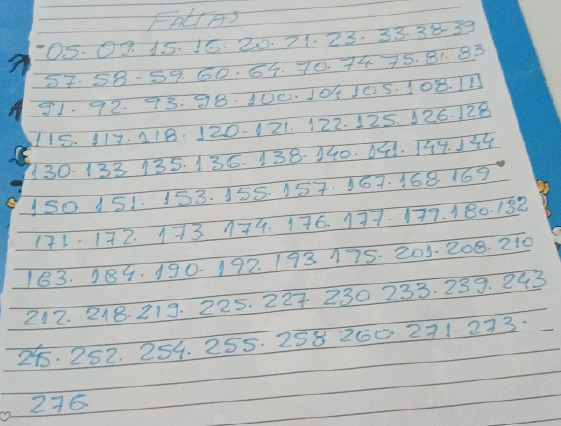 FALTAS
05. 09. 15. 16. 20. 21. 23. 33. 38. 39
57. 58 - 59. 60. 64. 70. 74. 75. 81. 83
91. 92. 93. 98. 100. 104 105. 108. 111
115. 117. 118. 120 - 121. 122. 125. 126. 128
130. 133 135. 136. 138. 140. 141. 144. 144
150 151. 153. 155. 157. 167. 168. 169
171. 172. 173 174. 176. 177. 179. 180. 132
183. 184. 190. 192. 193 195. 201. 208. 210
212. 218. 219. 225. 227 230 233. 239. 243
245. 252. 254. 255. 258 260 271. 273.
276.